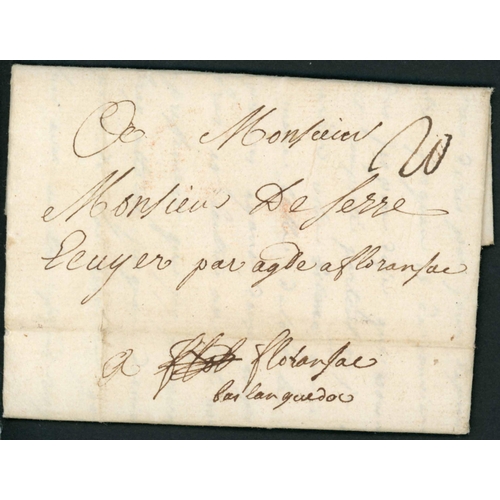 A Monsieur
20
Monsieur De serre
Ecuyer par agde a floransac
a floransac
bas languedoc